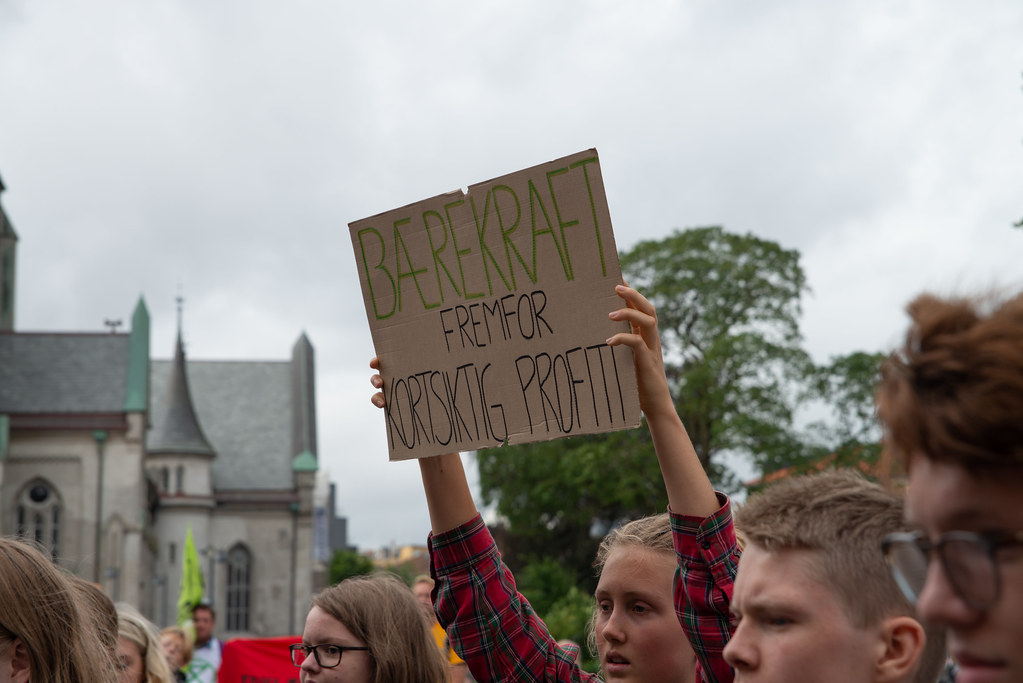 BÆREKRAFT
FREMFOR
KORTSIKTIG PROFITT